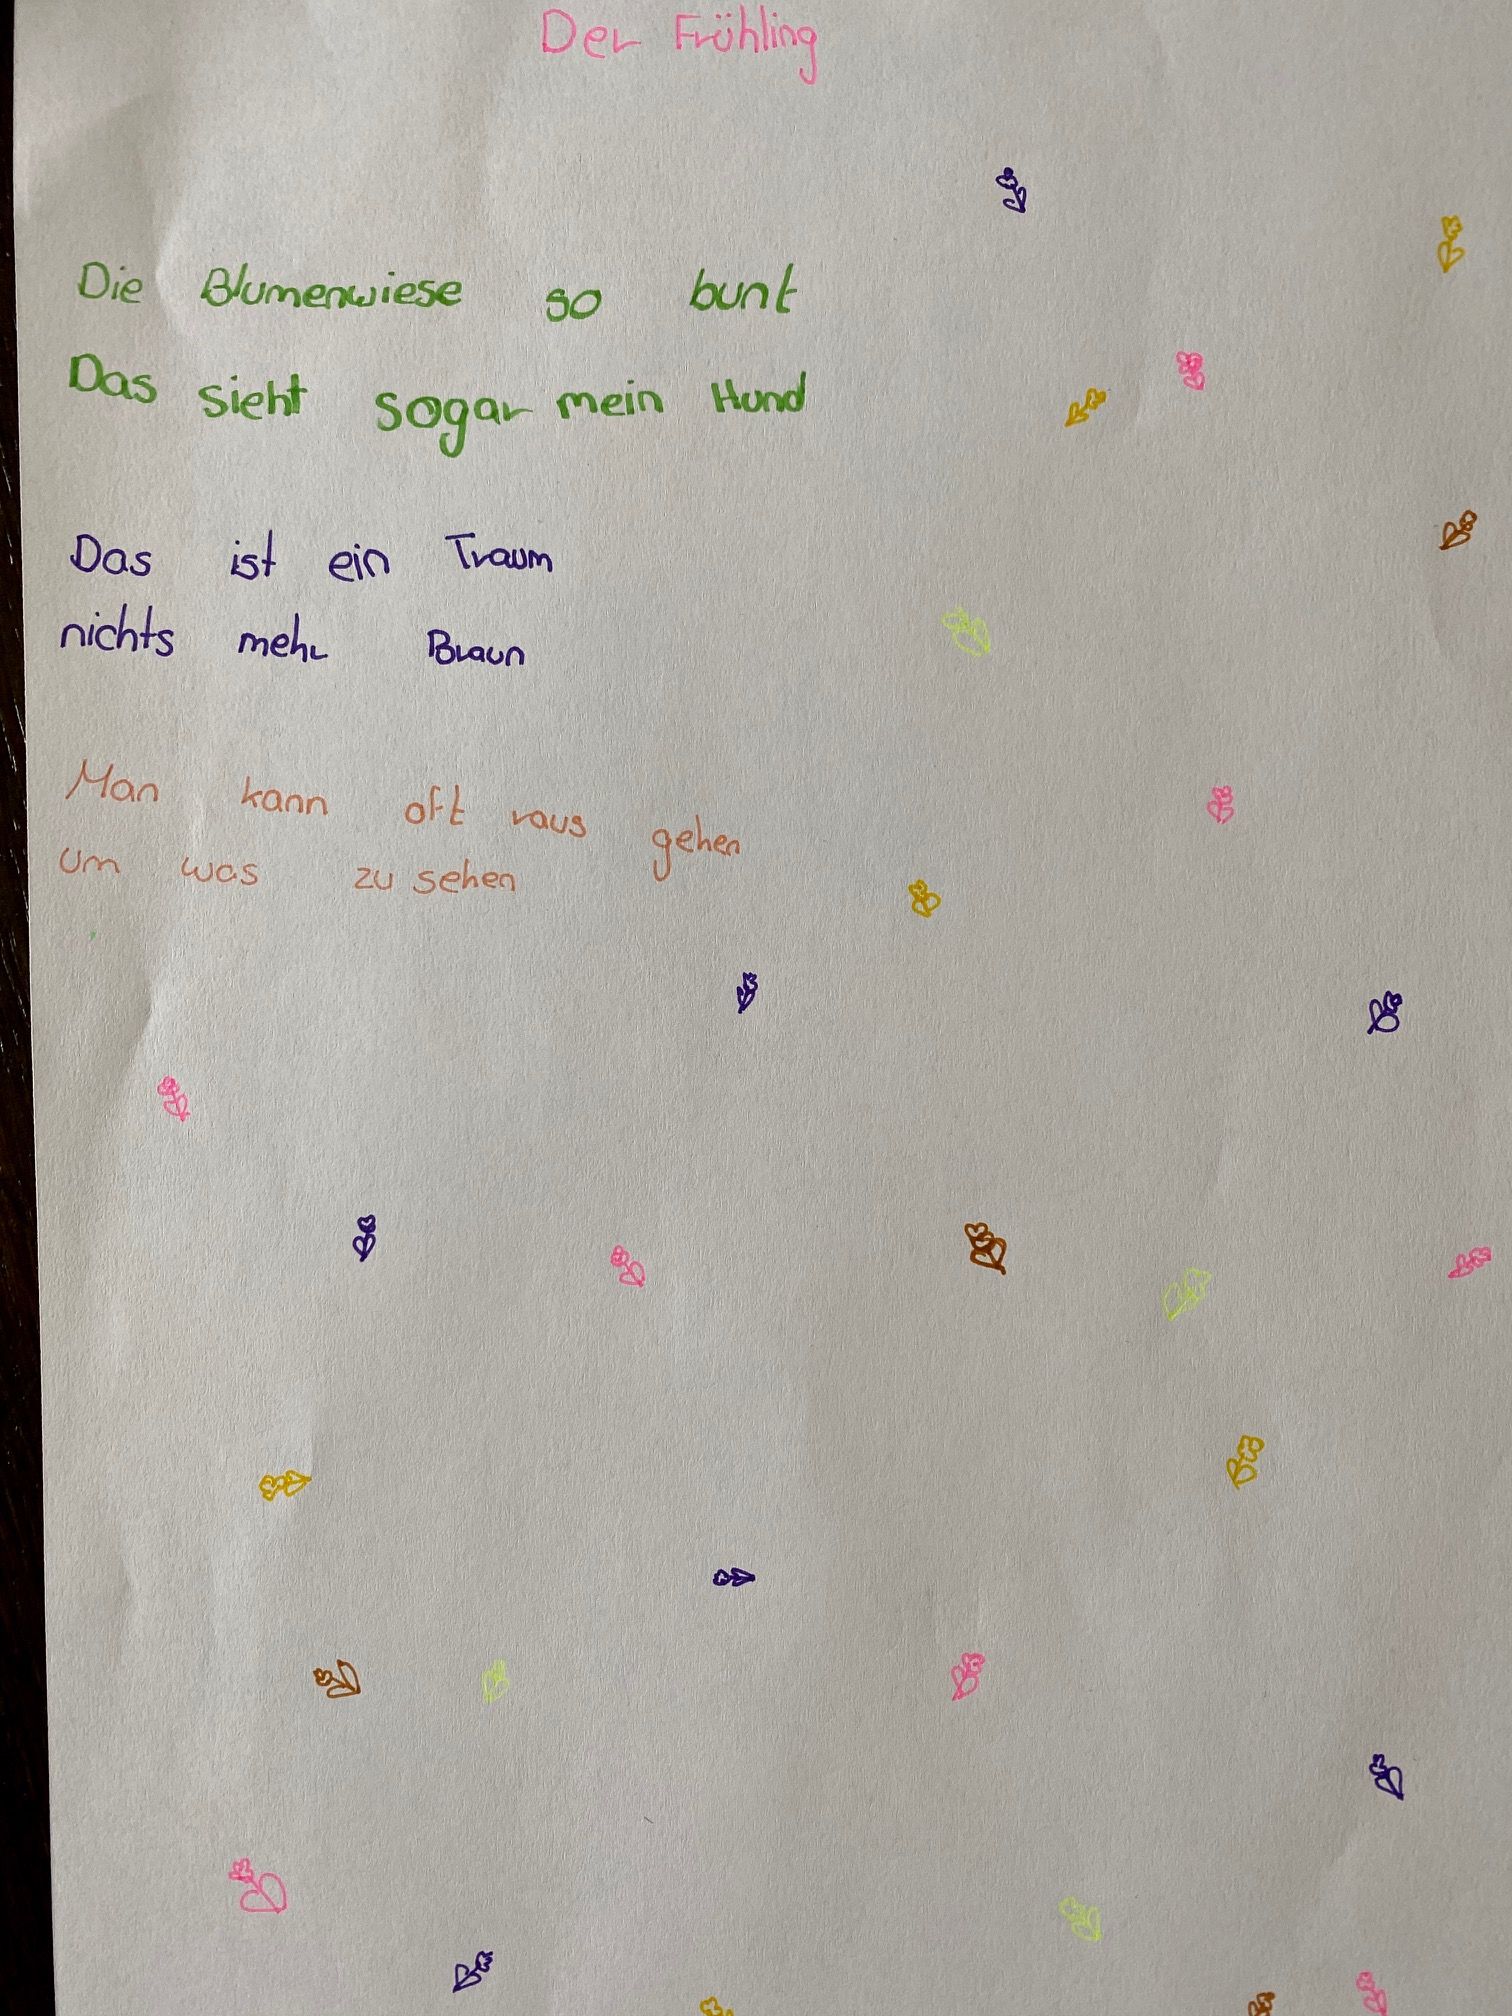 Der Frühling
Die Blumenwiese so bunt
Das sieht sogar mein Hund
Das ist ein Traum
nichts mehr Braun
Man kann oft raus gehen
um was zu sehen